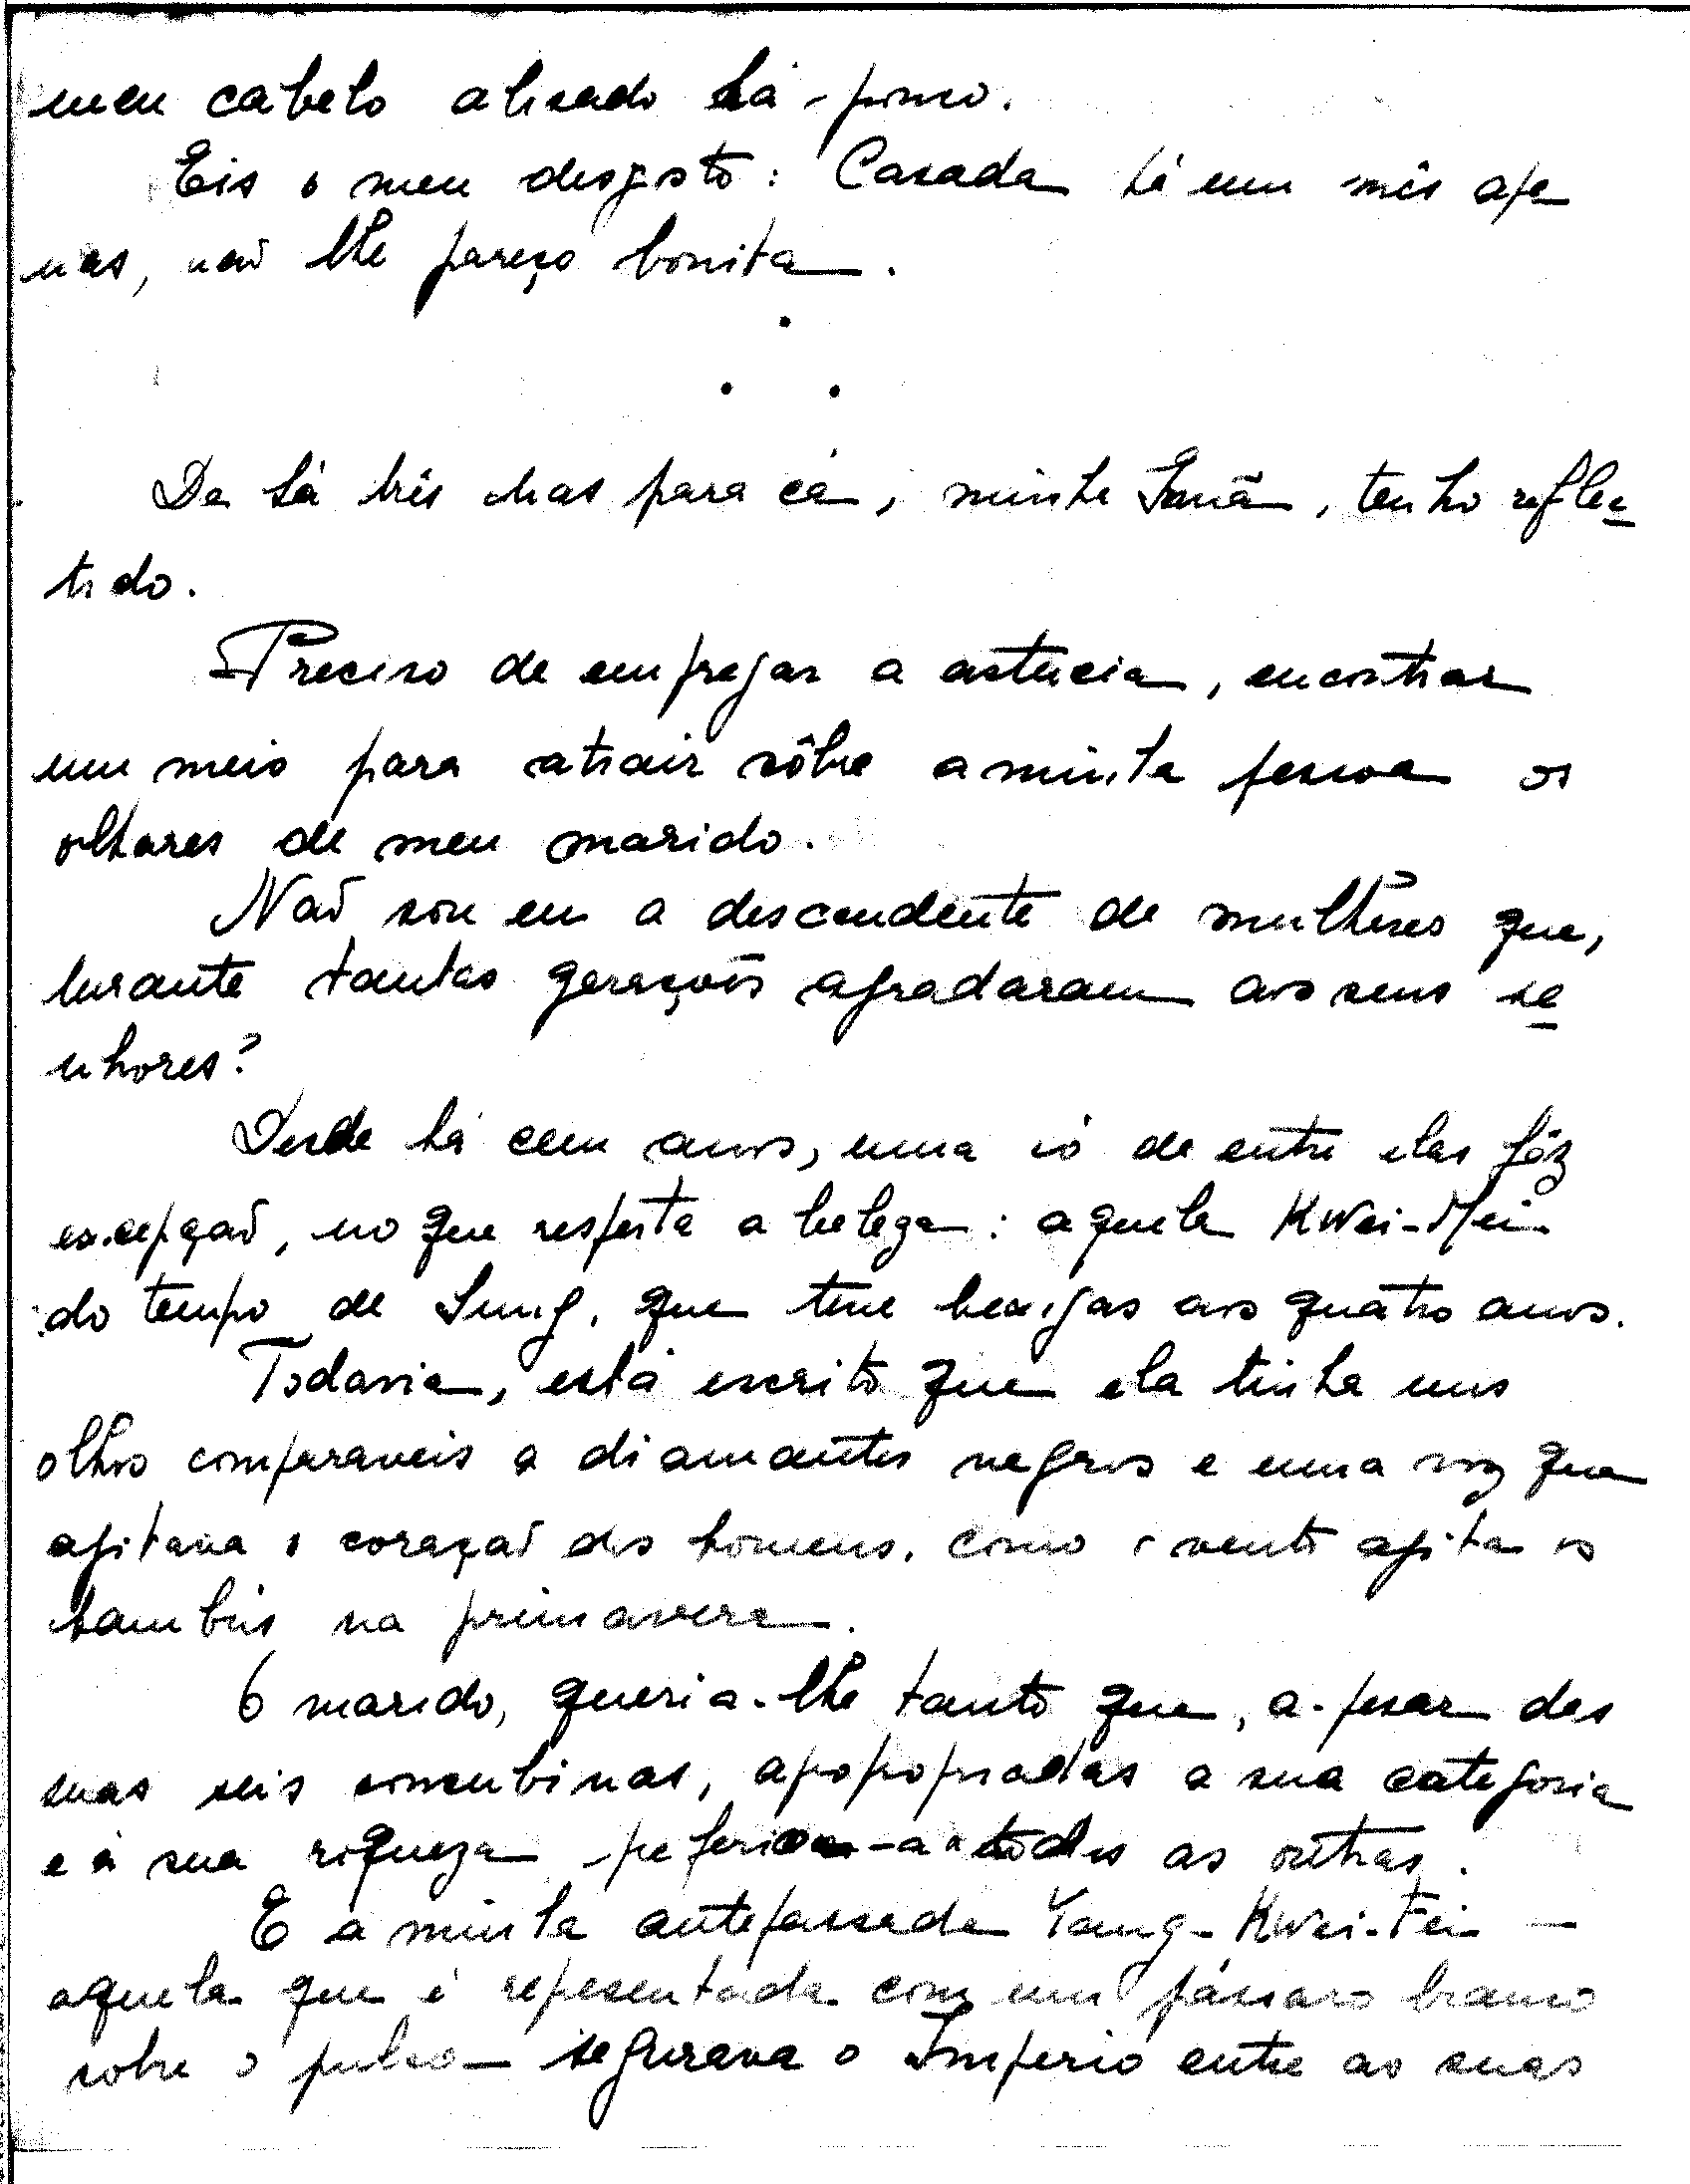 meu cabelo alisado há-pouco.
Eis o meu desgosto: Casada há um mês ape
nas, não lhe pareço bonita.
De há três dias para cá, minha Irmã, tenho reflec
tido.
Preciso de empregar a astucia, encontrar
um meio para atrair sôbre a minha pessoa os
olhares de meu marido.
Não sou eu a descendente de mulheres que,
durante tantas gerações agradaram aos seus se
nhores?
Desde há cem anos, uma só de entre elas fêz
excepção, no que respeita a beleza: aquela Kwei-Mei
do tempo de Sung, que teve bexigas aos quatro anos.
Todavia, está escrito que ela tinha uns
olhos comparaveis a diamantes negros e uma voz que
agitava o coração dos homens, como o vento agita os
bambús na primavera.
O marido, queria-lhe tanto que, a-pesar das
suas seis concubinas, apropriadas a sua categoria
e à sua riqueza preferia-a a todas as outras.
E a minha antepassada Yang-Kwei-Fei —
aquela que é representada com um pássaro branco
sobre o pulso — segurava o Imperio entre as suas